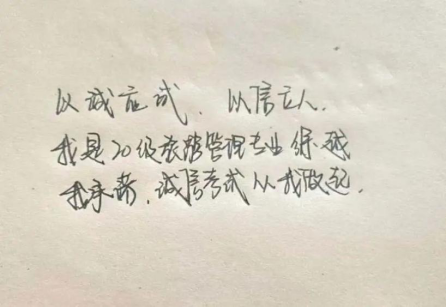 以诚应试、以信立人.
我是20级旅游管理专业徐
我承诺,诚信考试从我做起.